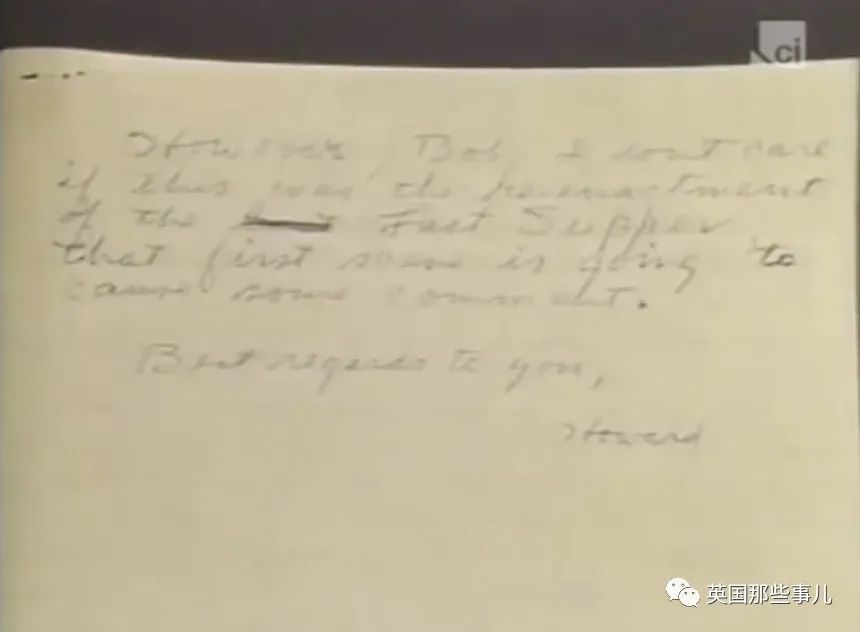 ci
However Bob, I don't care
if this was the re-enactment
of the Last Supper
that first scene is going to
cause some comment.
Best regards to you,
Howard
英国那些事儿